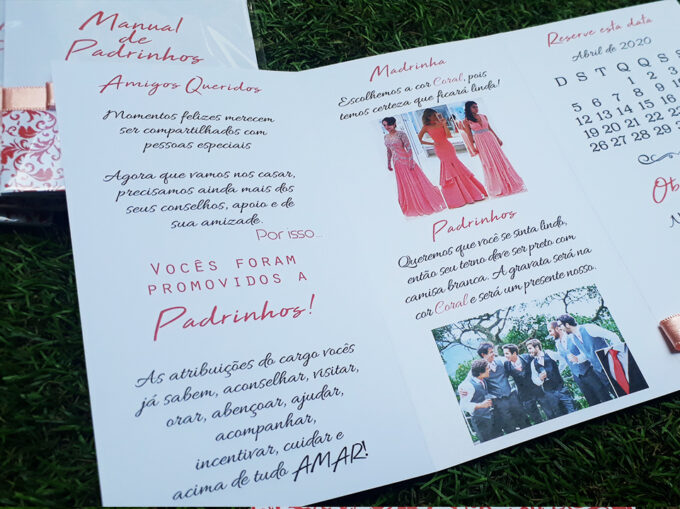 Manual
de
Padrinhos
Amigos Queridos
Momentos felizes merecem
ser compartilhados com
pessoas especiais
Agora que vamos nos casar,
precisamos ainda mais dos
seus conselhos, apoio e de
sua amizade.
Por isso...
VOCÊS FORAM
PROMOVIDOS A
Padrinhos!
As atribuições do cargo vocês
já sabem, aconselhar, visitar,
orar, abençoar, ajudar,
acompanhar,
incentivar, cuidar e
acima de tudo AMAR!
Madrinha
Escolhemos a cor Coral, pois
temos certeza que ficará linda!
Padrinhos
Queremos que você se sinta lindo,
então seu terno deve ser preto com
camisa branca. A gravata será na
cor Coral e será um presente nosso.
Reserve esta data
Abril de 2020
D S T Q Q S S
1 2 3
5 6 7 8 9 10
12 13 14 15 16 1
19 20 21 22 23
26 27 28 29 3